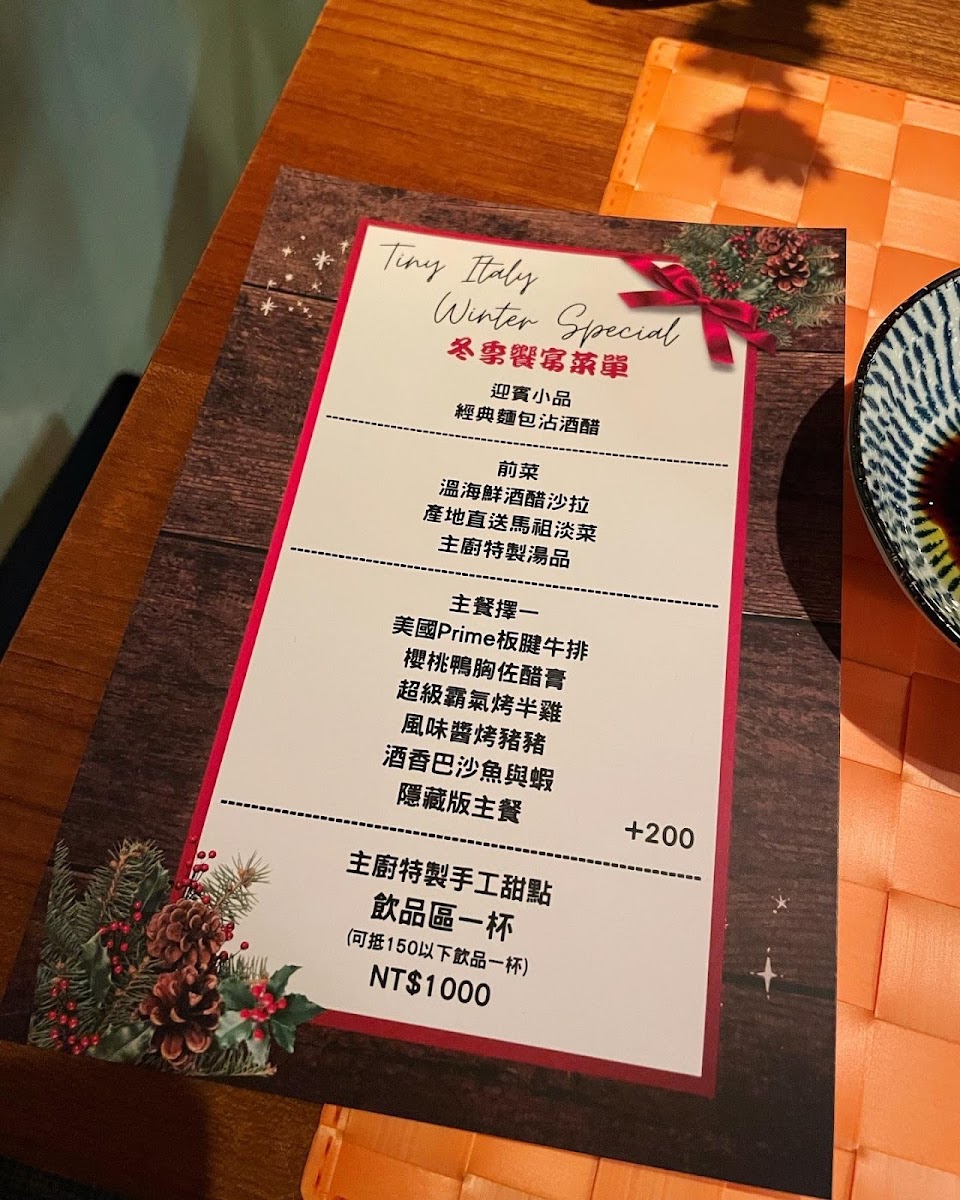 Tiny Italy
Winter Special
冬季饗宴菜單
迎賓小品
經典麵包沾酒醋
前菜
溫海鮮酒醋沙拉
產地直送馬祖淡菜
主廚特製湯品
主餐擇一
美國Prime板腱牛排
櫻桃鴨胸佐醋膏
超級霸氣烤半雞
風味醬烤豬豬
酒香巴沙魚與蝦
隱藏版主餐 +200
主廚特製手工甜點
飲品區一杯
(可抵150以下飲品一杯)
NT$1000